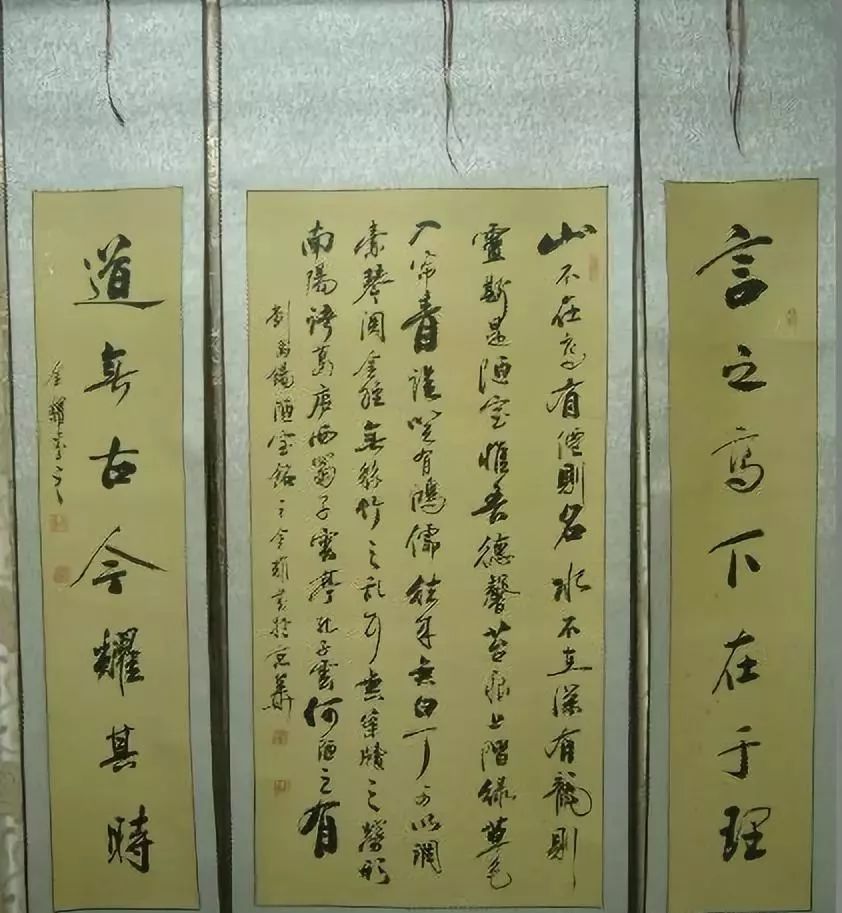 言之高下在于理
山不在高有僊則名水不在深有龍則
靈斯是陋室惟吾德馨苔痕上階緑草色
入帘青談笑有鴻儒往来無白丁可以調
素琴閲金經無絲竹之乱耳無案牘之勞形
南陽諸葛庐西蜀子雲亭孔子雲何陋之有
劉禹錫陋室銘之金耀書於京華
道無古今耀其時
金耀書之